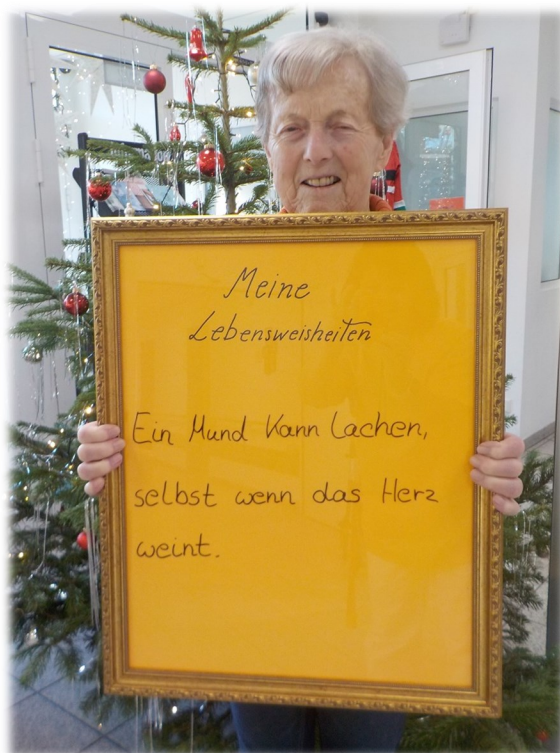 Meine
Lebensweisheiten
Ein Mund Kann Lachen,
selbst wenn das Herz
weint.